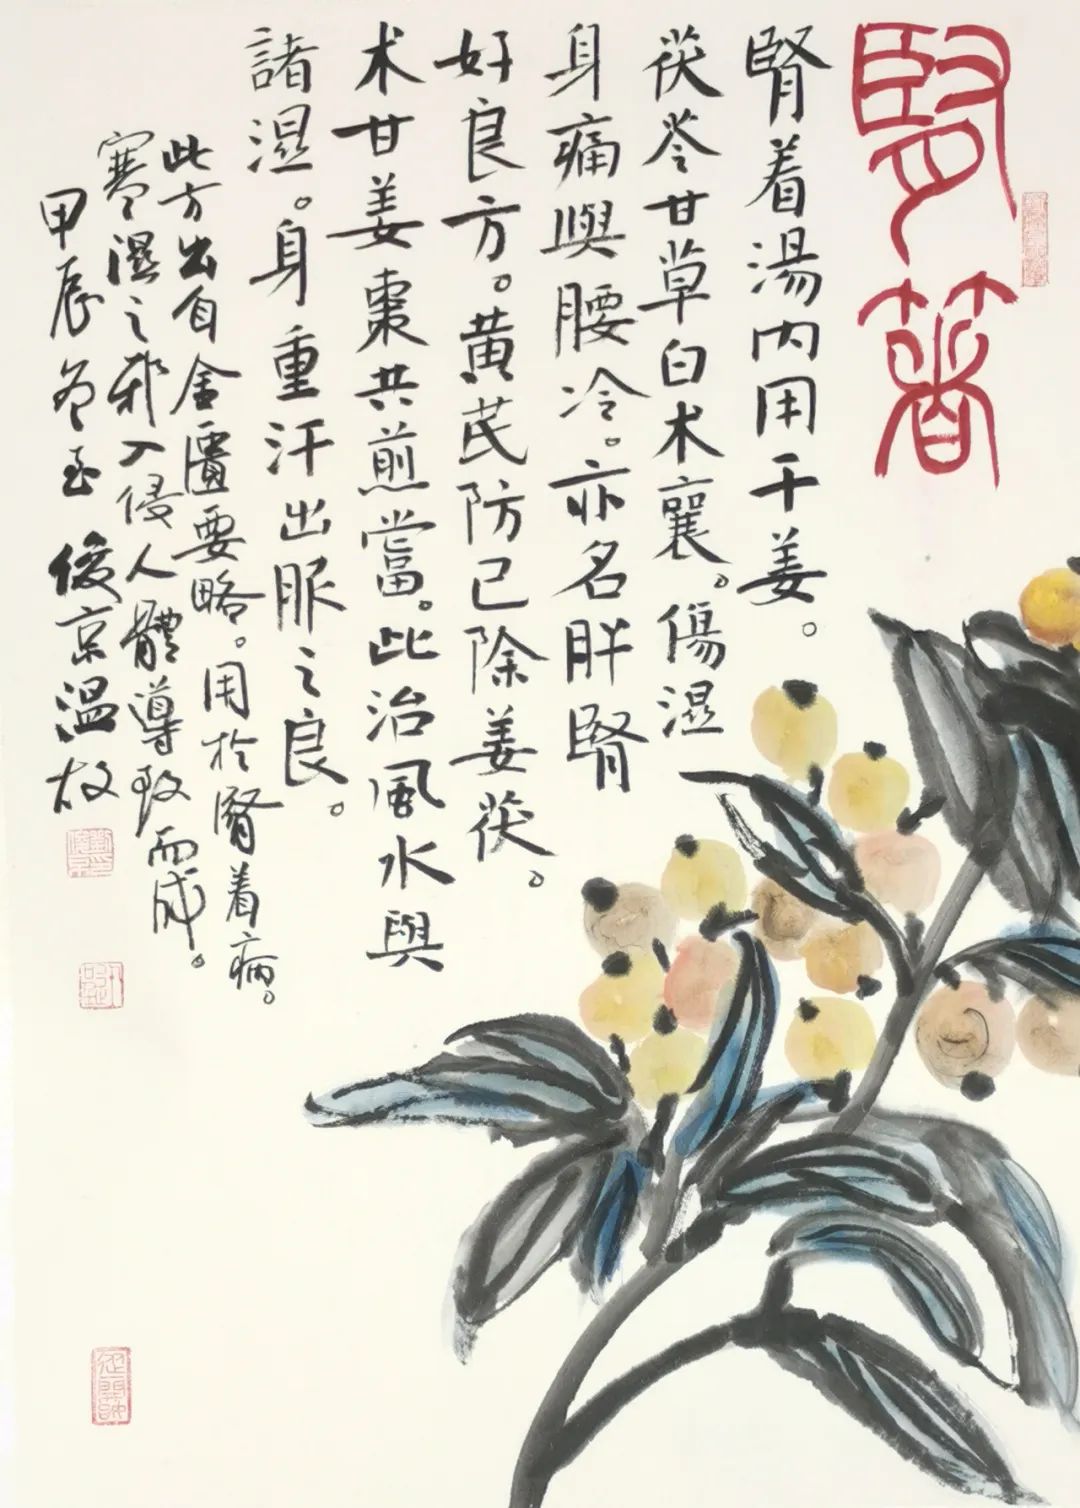 腎著
腎着湯内用干姜。
茯苓甘草白术襄。傷湿
身痛與腰冷。亦名胖腎
好良方。黄芪防己除姜茯。
术甘姜棗共煎當。此治風水與
諸湿。身重汗出服之良。
此方出自金匱要略。用於腎着病。
寒濕之邪入侵人體導致而成。
甲辰冬至俊京温故